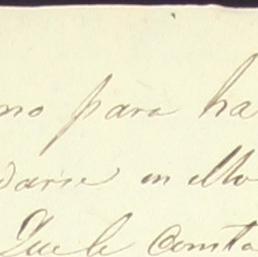 no para ha
darse en Mo
Que le consta